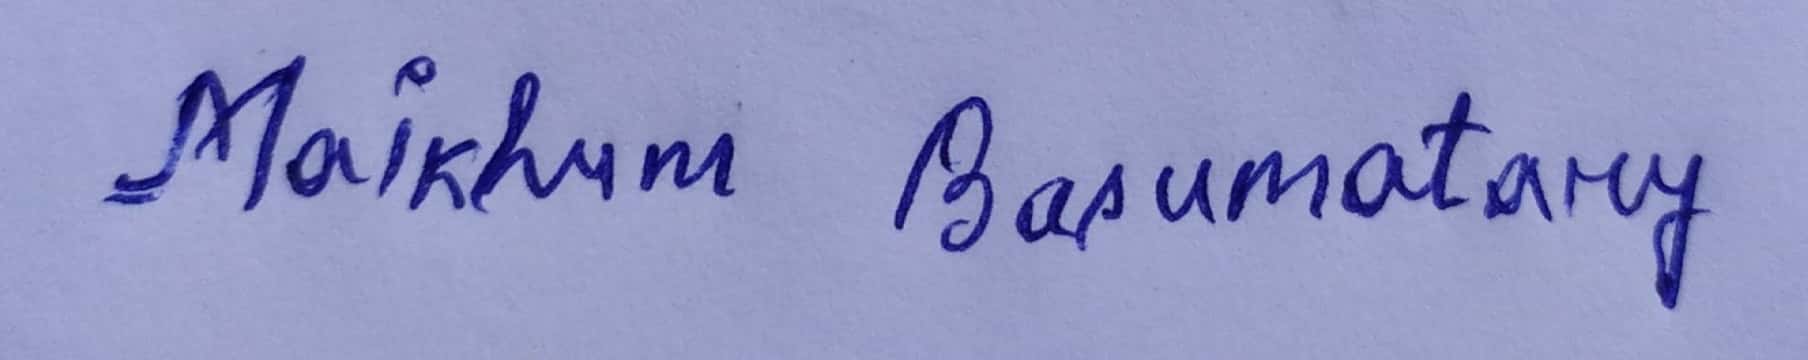 Maikhum Basumatary